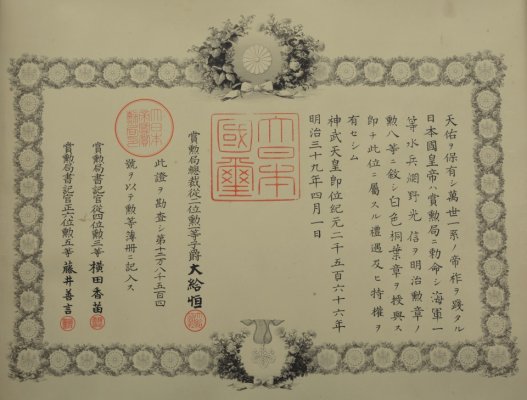 天佑ヲ保有シ萬世一系ノ帝祚ヲ踐タル
日本國皇帝ハ賞勲局ニ勅命シ海軍一
等水兵網野光信ヲ明治勲章ノ
勲八等ニ敘シ白色桐葉章ヲ授與ス
即チ此位ニ屬スル禮遇及ヒ特權ヲ
有セシム
神武天皇即位紀元二千五百六十六年
明治三十九年四月一日
大日本
國璽
賞勲局總裁從二位勲一等子爵大給恒
此證ヲ勘査シ第十二万八千五百四
號ヲ以テ勲等簿冊ニ記入ス
賞勲局書記官從四位勲三等橫田香苗
賞勲局書記官正六位勲五等藤井善言